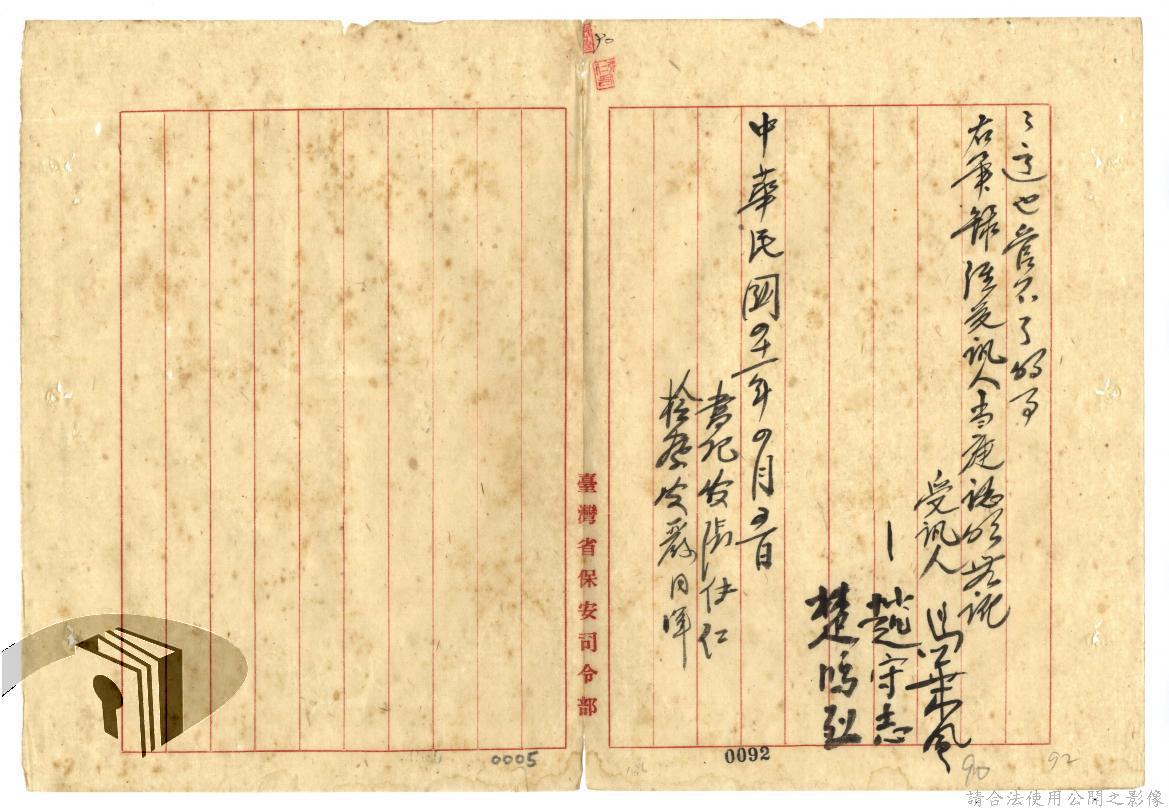 這也管不了的了
右筆錄經受訊人當庭認明無訛
受訊人
趙守志
楚鳴烈
中華民國四十一年四月五日
書記官張伊仁
檢察官
臺灣省保安司令部
0092
0005
90
92
90
請合法使用公開之影像